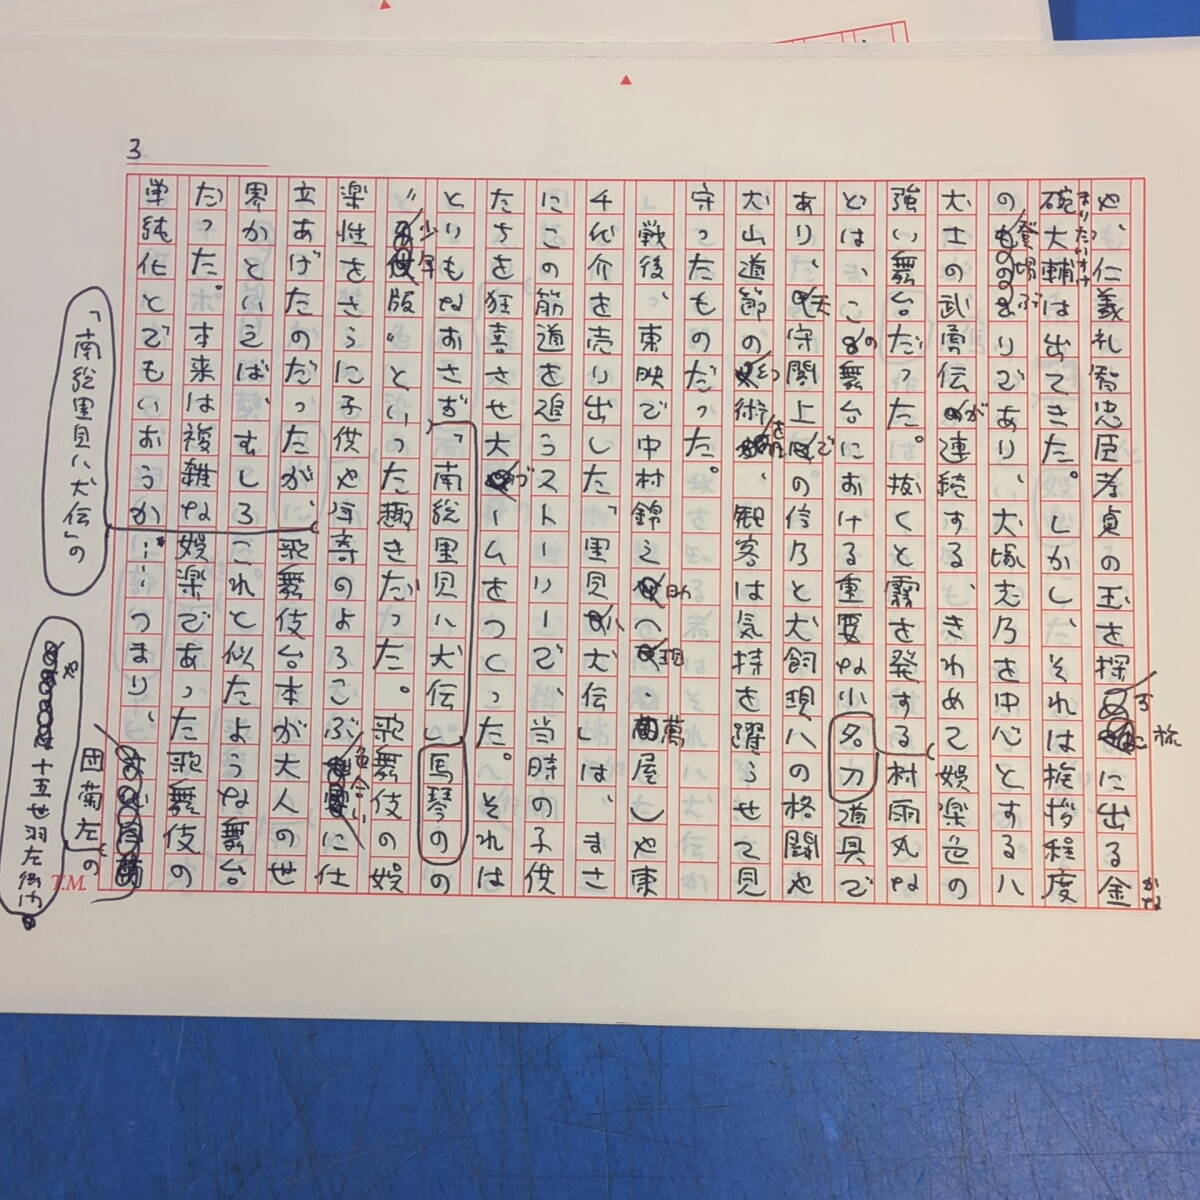 3
や、仁義礼智忠臣孝貞の玉を探る旅に出る金
碗大輔は出てきた。しかし、それは挨拶程度
の登場ぶりであり、犬塚志乃を中心とする八
犬士の武勇伝が連続する、きわめて娯楽色の
強い舞台だった。抜くと露を発する村雨丸な
どは、この舞台における重要な小道具で
名刀
あり、天守閣上での信乃と犬飼現八の格闘や
犬山道節の幻術を、観客は気持を躍らせて見
守ったものだった。
戦後、東映で中村錦之助(現・萬屋)や東
千代介を売り出した「里見八犬伝」は、まさ
にこの筋道を追うストーリーで、当時の子供
たちを狂喜させ大ブームをつくった。それは
とりもなおさず、「南総里見八犬伝」の
馬琴の
〝少年版〟といった趣きだった。歌舞伎の娯
楽性をさらに子供や年寄のよろこぶ色合いに仕
立あげたのだったが、歌舞伎台本が大人の世
「南総里見八犬伝」の
界かといえば、むしろこれと似たような舞台
だった。本来は複雑な娯楽であった歌舞伎の
単純化とでもいおうか……つまり、
団菊左の
や
十五世羽左衛門
まりだいすけ
かな
T.M.